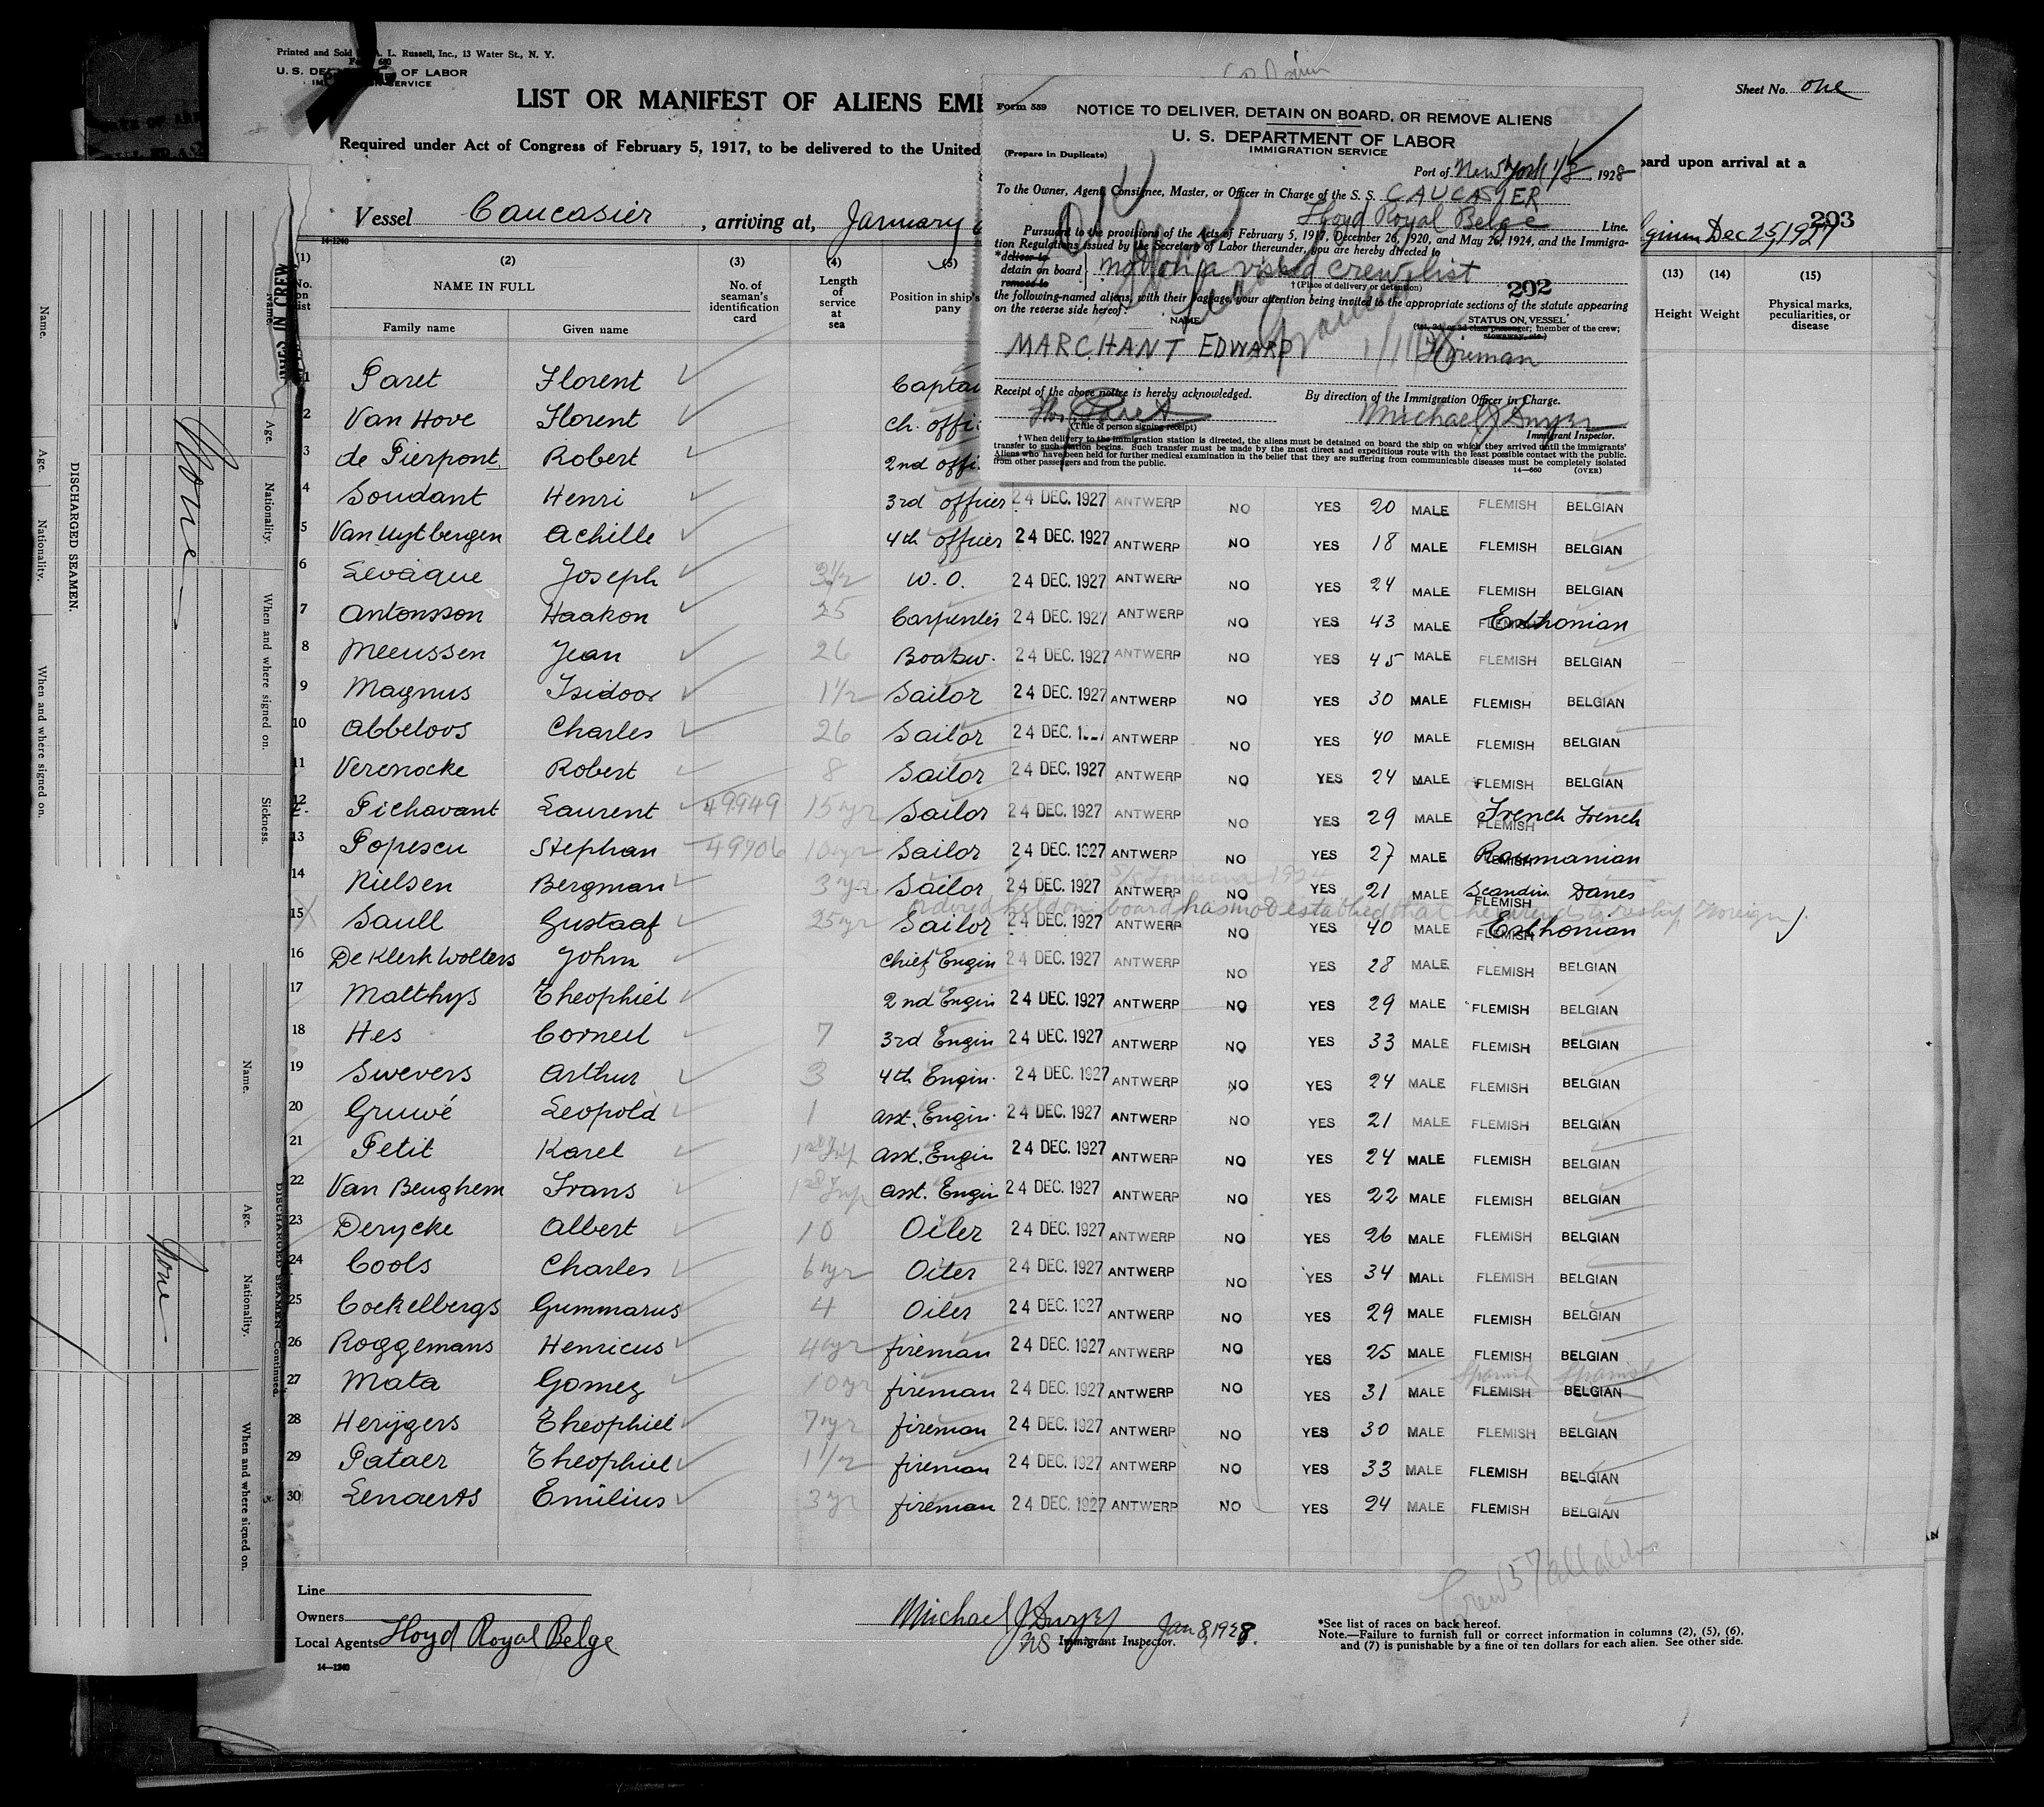 Printed and Sold A. L. Russell, Inc., 13 Water St., N. Y.
U. S. OF LABOR
SERVICE
Sheet No. one
LIST OR MANIFEST OF ALIENS EM
Required under Act of Congress of February 5, 1917, to be delivered to the United
oard upon arrival at a
Vessel Caucasier , arriving at, January 6
ginm Dec 25, 1927
203
14-1240
Form 559
NOTICE TO DELIVER, DETAIN ON BOARD, OR REMOVE ALIENS
U. S. DEPARTMENT OF LABOR
IMMIGRATION SERVICE
(Prepare in Duplicate)
Port of New York 1/8, 1928
To the Owner, Agent, Consignee, Master, or Officer in Charge of the S. S. CAUCASIER
Lloyd Royal Belge Line.
Pursuant to the provisions of the Acts of February 5, 1917, December 26, 1920, and May 26, 1924, and the Immigra-
tion Regulations issued by the Secretary of Labor thereunder, you are hereby directed to
*deliver to
detain on board
remove to
not on a visaed crew list
† (Place of delivery or detention)
202
the following-named aliens, with their baggage, your attention being invited to the appropriate sections of the statute appearing
on the reverse side hereof:
NAME
STATUS ON VESSEL
(1st, 2d, or 3d class passenger; member of the crew; stowaway, etc.)
MARCHANT EDWARD Fireman
Receipt of the above notice is hereby acknowledged.
By direction of the Immigration Officer in Charge.
Paret
Michael J Dwyer
(Title of person signing receipt)
Immigrant Inspector.
† When delivery to the immigration station is directed, the aliens must be detained on board the ship on which they arrived until the immigrants'
transfer to such station begins. Such transfer must be made by the most direct and expeditious route with the least possible contact with the public.
Aliens who have been held for further medical examination in the belief that they are suffering from communicable diseases must be completely isolated
from other passengers and from the public.
14—660 (OVER)
(1) (2) (3) (4) (5) (13) (14) (15)
No. on list
NAME IN FULL
Family name Given name
No. of seaman's identification card
Length of service at sea
Position in ship's pany
Height Weight
Physical marks, peculiarities, or disease
1 Paret Florent Captai
2 Van Hove Florent ch. offi
3 de Pierpont Robert 2nd offi.
4 Soudant Henri 3rd officer 24 DEC. 1927 ANTWERP NO YES 20 MALE FLEMISH BELGIAN
5 Van Uytbergen Achille 4th officer 24 DEC. 1927 ANTWERP NO YES 18 MALE FLEMISH BELGIAN
6 Levaque Joseph 3½ W. O. 24 DEC. 1927 ANTWERP NO YES 24 MALE FLEMISH BELGIAN
7 Antonsson Haakon 25 Carpenter 24 DEC. 1927 ANTWERP NO YES 43 MALE FLEMISH Esthonian
8 Meeussen Jean 26 Boatsw. 24 DEC. 1927 ANTWERP NO YES 45 MALE FLEMISH BELGIAN
9 Magnus Isidoor 1½ Sailor 24 DEC. 1927 ANTWERP NO YES 30 MALE FLEMISH BELGIAN
10 Abbeloos Charles 26 Sailor 24 DEC. ANTWERP NO YES 40 MALE FLEMISH BELGIAN
11 Verenocke Robert 8 Sailor 24 DEC. 1927 ANTWERP NO YES 24 MALE FLEMISH BELGIAN
12 Pichavant Laurent 49949 15 yr Sailor 24 DEC. 1927 ANTWERP NO YES 29 MALE FLEMISH French French
13 Popescu Stephan 49906 10 yr Sailor 24 DEC. 1927 ANTWERP NO YES 27 MALE FLEMISH Roumanian
14 Nielsen Bergman 3 yr Sailor 24 DEC. 1927 ANTWERP NO YES 21 MALE FLEMISH Scandin. Danes
ordered held on board has not established that he intends to reship foreign
15 Saull Gustaaf 25 yr Sailor 24 DEC. 1927 ANTWERP NO YES 40 MALE FLEMISH Esthonian
16 De Klerk Wolters John chief Engin 24 DEC. 1927 ANTWERP NO YES 28 MALE FLEMISH BELGIAN
17 Matthys Theophiel 2nd Engin 24 DEC. 1927 ANTWERP NO YES 29 MALE FLEMISH BELGIAN
18 Hes Corneel 7 3rd Engin 24 DEC. 1927 ANTWERP NO YES 33 MALE FLEMISH BELGIAN
19 Swevers Arthur 3 4th Engin. 24 DEC. 1927 ANTWERP NO YES 24 MALE FLEMISH BELGIAN
20 Gruwé Leopold 1 asst. Engin. 24 DEC. 1927 ANTWERP NO YES 21 MALE FLEMISH BELGIAN
21 Petit Karel 1st Trip asst. Engin 24 DEC. 1927 ANTWERP NO YES 24 MALE FLEMISH BELGIAN
22 Van Beughem Frans 1st Trip asst. Engin 24 DEC. 1927 ANTWERP NO YES 22 MALE FLEMISH BELGIAN
23 Derycke Albert 10 Oiler 24 DEC. 1927 ANTWERP NO YES 26 MALE FLEMISH BELGIAN
24 Cools Charles 6 yr Oiler 24 DEC. 1927 ANTWERP NO YES 34 MALE FLEMISH BELGIAN
25 Cockelbergs Gummarus 4 Oiler 24 DEC. 1927 ANTWERP NO YES 29 MALE FLEMISH BELGIAN
26 Roggemans Henricus 4 yr fireman 24 DEC. 1927 ANTWERP NO YES 25 MALE FLEMISH BELGIAN
Spanish Spanish
27 Mata Gomez 10 yr fireman 24 DEC. 1927 ANTWERP NO YES 31 MALE FLEMISH BELGIAN
28 Herygers Theophiel 7 yr fireman 24 DEC. 1927 ANTWERP NO YES 30 MALE FLEMISH BELGIAN
29 Pataer Theophiel 1½ fireman 24 DEC. 1927 ANTWERP NO YES 33 MALE FLEMISH BELGIAN
30 Lenaerts Emilius 3 yr fireman 24 DEC. 1927 ANTWERP NO YES 24 MALE FLEMISH BELGIAN
Crew 57 all aliens
Line
Owners
Local Agents Lloyd Royal Belge
Michael J Dwyer Jan 8, 1928.
Immigrant Inspector.
*See list of races on back hereof.
Note.—Failure to furnish full or correct information in columns (2), (5), (6),
and (7) is punishable by a fine of ten dollars for each alien. See other side.
14—1240
DISCHARGED SEAMEN.
Name. Age. Nationality. When and where signed on.
Name. Age. Nationality. When and where signed on. Sickness.
None
DISCHARGED SEAMEN—Continued.
Name. Age. Nationality. When and where signed on.
None